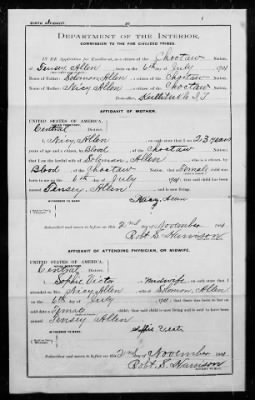 BIRTH AFFIDAVIT.
DEPARTMENT OF THE INTERIOR,
COMMISSION TO THE FIVE CIVILIZED TRIBES.
IN RE Application for Enrollment, as a citizen of the Choctaw Nation,
of Tensey Allen, born on the 6th day of July, 1901
Name of Father: Solomon Allen a citizen of the Choctaw Nation.
Name of Mother: Sicy Allen a citizen of the Choctaw Nation.
Postoffice,
AFFIDAVIT OF MOTHER.
UNITED STATES OF AMERICA,
Central District.
I, Sicy Allen, on oath state that I am 23 years
years of age and a citizen by Blood, of the Choctaw Nation;
that I am the lawful wife of Solomon Allen, who is a citizen, by
Blood of the Choctaw Nation; that a Female child was
born to me on the 6th day of July, 1901; that said child has been named
Tensey Allen, and is now living.
WITNESSES TO MARK:
Subscribed and sworn to before me this 2nd day of November, 1901
Robt. S. Harrison
AFFIDAVIT OF ATTENDING PHYSICIAN, OR MIDWIFE.
UNITED STATES OF AMERICA,
Central District.
I, Sophie, a midwife, on oath state that I
attended on Mrs. Sicy Allen, wife of Solomon Allen
on the 6th day of July, 1901; that there was born to her on
said date a Female child; that said child is now living and is said to have been
named Tensey Allen
WITNESSES TO MARK:
Subscribed and sworn to before me this 2 day of November, 1901
Robt. S. Harrison